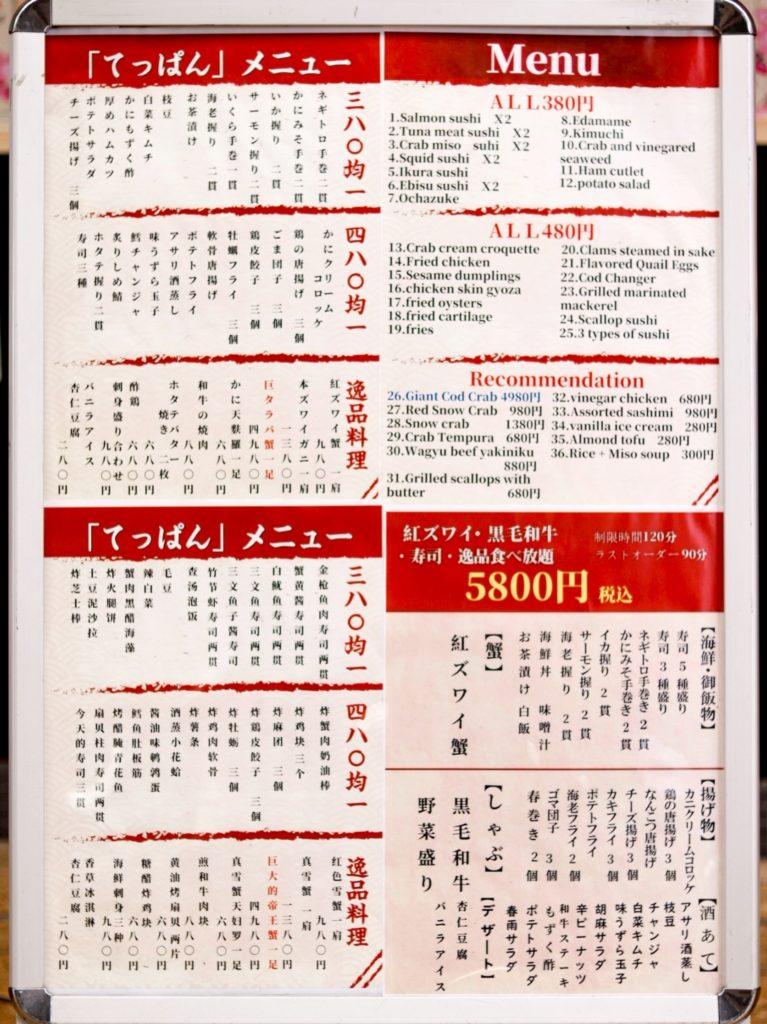 「てっぱん」メニュー
三八〇均一
ネギトロ手巻 二貫
かにみそ手巻 二貫
いか握り 二貫
サーモン握り 二貫
いくら手巻 一貫
海老握り 二貫
お茶漬け
枝豆
白菜キムチ
かにもずく酢
厚めハムカツ
ポテトサラダ
チーズ揚げ 三個
四八〇均一
かにクリームコロッケ
鶏の唐揚げ 三個
ごま団子 三個
鶏皮餃子 三個
牡蠣フライ 三個
軟骨唐揚げ
ポテトフライ
アサリ酒蒸し
味うずら玉子
鱈チャンジャ
炙りしめ鯖
ホタテ握り二貫
寿司三種
逸品料理
紅ズワイ蟹 一肩 九八〇円
本ズワイガニ一肩 一三八〇円
巨タラバ蟹一足 四九八〇円
かに天麩羅一足 六八〇円
和牛の焼肉 八八〇円
ホタテバター焼き 二枚 六八〇円
酢鶏 六八〇円
刺身盛り合わせ 九八〇円
バニラアイス
杏仁豆腐 二八〇円
Menu
ALL380円
1.Salmon sushi X2
2.Tuna meat sushi X2
3.Crab miso suhi X2
4.Squid sushi X2
5.Ikura sushi
6.Ebisu sushi X2
7.Ochazuke
8.Edamame
9.Kimuchi
10.Crab and vinegared
seaweed
11.Ham cutlet
12.potato salad
ALL480円
13.Crab cream croquette
14.Fried chicken
15.Sesame dumplings
16.chicken skin gyoza
17.fried oysters
18.fried cartilage
19.fries
20.Clams steamed in sake
21.Flavored Quail Eggs
22.Cod Changer
23.Grilled marinated
mackerel
24.Scallop sushi
25.3 types of sushi
Recommendation
26.Giant Cod Crab 4980円
27.Red Snow Crab 980円
28.Snow crab 1380円
29.Crab Tempura 680円
30.Wagyu beef yakiniku
880円
31.Grilled scallops with
butter 680円
32.vinegar chicken 680円
33.Assorted sashimi 980円
34.vanilla ice cream 280円
35.Almond tofu 280円
36.Rice + Miso soup 300円
「てっぱん」メニュー
三八〇均一
金枪鱼肉寿司两贯
蟹黄酱寿司两贯
白鱿鱼寿司两贯
三文鱼寿司两贯
三文鱼子酱寿司
竹节虾寿司两贯
查汤泡饭
毛豆
辣白菜
蟹肉黑醋海藻
炸火腿饼
土豆泥沙拉
炸芝士棒
四八〇均一
炸蟹肉奶油棒
炸鸡块 三个
炸麻团 三個
炸鶏皮餃子 三個
炸牡蛎 三個
炸鸡肉软骨
炸薯条
酒蒸小花蛤
酱油味鹌鹑蛋
鳕鱼肚板筋
烤醋腌青花鱼
扇贝柱肉寿司两贯
今天的寿司三贯
逸品料理
红色雪蟹一肩 九八〇円
真雪蟹 一肩 一三八〇円
巨大的帝王蟹一足 四九八〇円
真雪蟹天妇罗一足 六八〇円
煎和牛肉块 八八〇円
黄油烤扇贝两片 六八〇円
糖醋炸鸡块 六八〇円
海鲜刺身三种 九八〇円
香草冰淇淋
杏仁豆腐 二八〇円
紅ズワイ・黒毛和牛
・寿司・逸品食べ放題
制限時間120分
ラストオーダー90分
5800円 税込
【海鮮・御飯物】
寿司 5 種盛り
寿司 3 種盛り
ネギトロ手巻き 2 貫
かにみそ手巻き 2 貫
イカ握り 2 貫
サーモン握り 2 貫
海老握り 2 貫
海鮮丼 味噌汁
お茶漬け 白飯
【蟹】
紅ズワイ蟹
【揚げ物】
カニクリームコロッケ
鶏の唐揚げ 3 個
なんこつ唐揚げ
チーズ揚げ 3 個
カキフライ 3 個
ポテトフライ
海老フライ 2 個
ゴマ団子 3 個
春巻き 2 個
【しゃぶ】
黒毛和牛
野菜盛り
【酒あて】
アサリ酒蒸し
枝豆
チャンジャ
白菜キムチ
味うずら玉子
胡麻サラダ
辛ピーナッツ
和牛ステーキ
もずく酢
ポテトサラダ
春雨サラダ
【デザート】
杏仁豆腐
バニラアイス